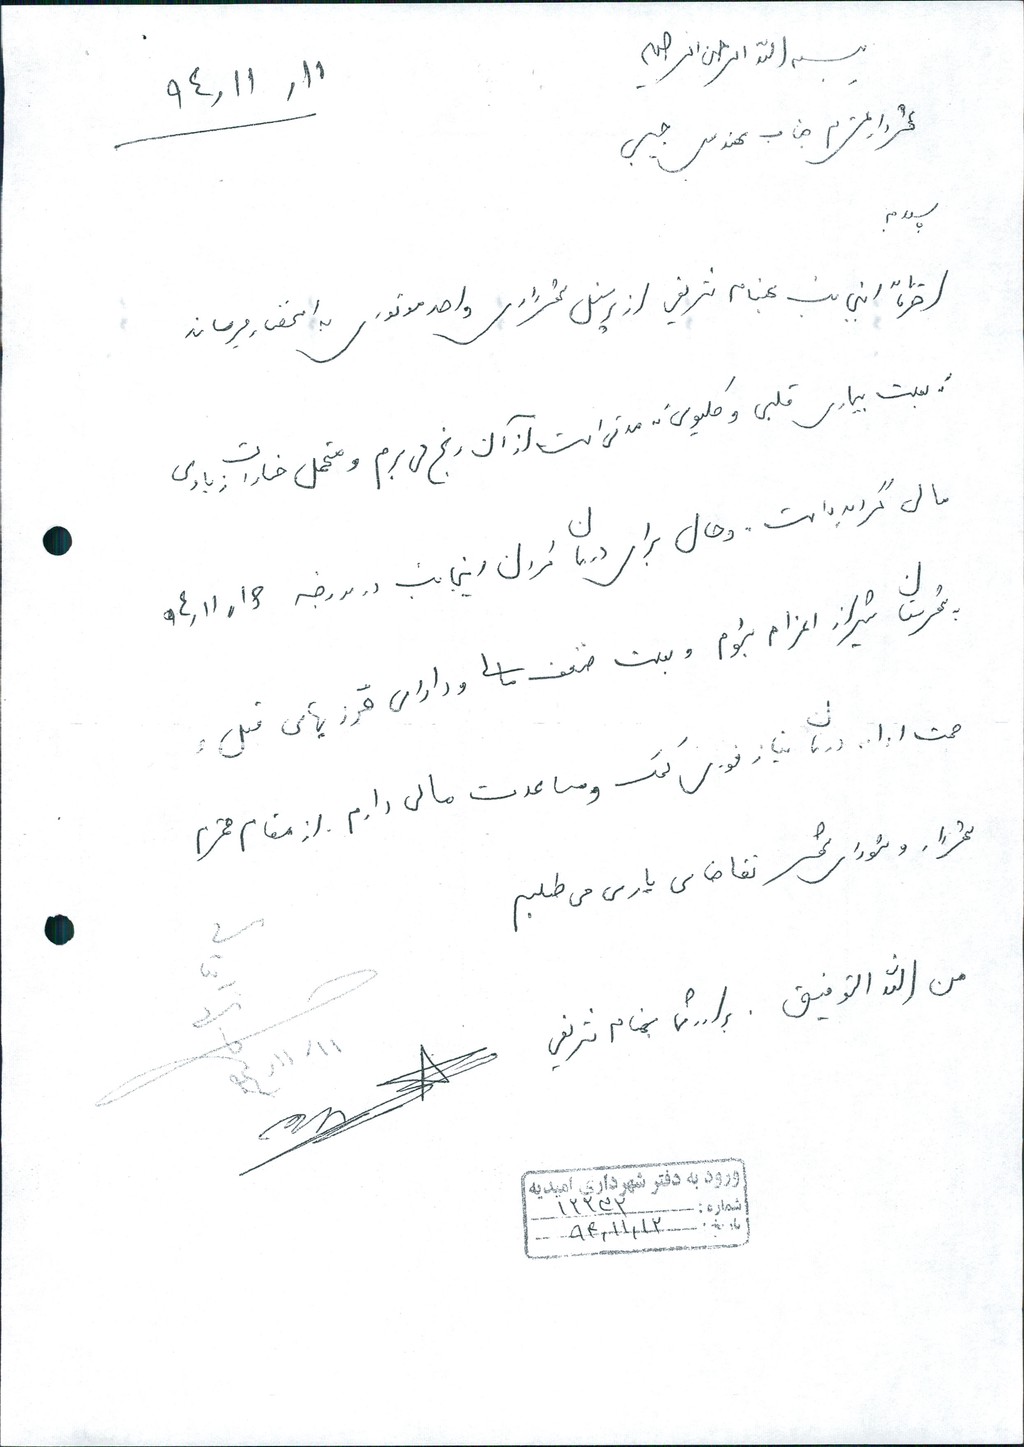 بسم الله الرحمن الرحیم
۹۴,۱۱,۱۱
شهردار محترم جناب مهندس حبیبی
احتراماً اینجانب بهنام شریفی از پرسنل شهرداری واحد موتوری به استحضار میرساند
که بعلت بیماری قلبی و کلیوی که مدتی است از آن رنج می برم و متحمل خسارات زیادی
مالی گردیده است. و حال برای درمان کردن اینجانب در مورخه ۹۴,۱۱,۱۶
به شهرستان شیراز اعزام بشوم و بعلت ضعف مالی و دارای قرض های قبلی و
جهت ادامه درمان نیاز فوری کمک و مساعدت مالی دارم. از مقام محترم
شهردار و شورای شهر تقاضای یاری می طلبم
من الله التوفیق. برادر شما بهنام شریفی
ورود به دفتر شهرداری امیدیه
شماره: ۱۲۲۴۲
تاریخ: ۹۴,۱۱,۱۲